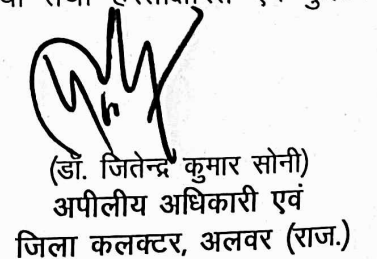 तथा
(डॉ. जितेन्द्र कुमार सोनी)
अपीलीय अधिकारी एवं
जिला कलक्टर, अलवर (राज.)